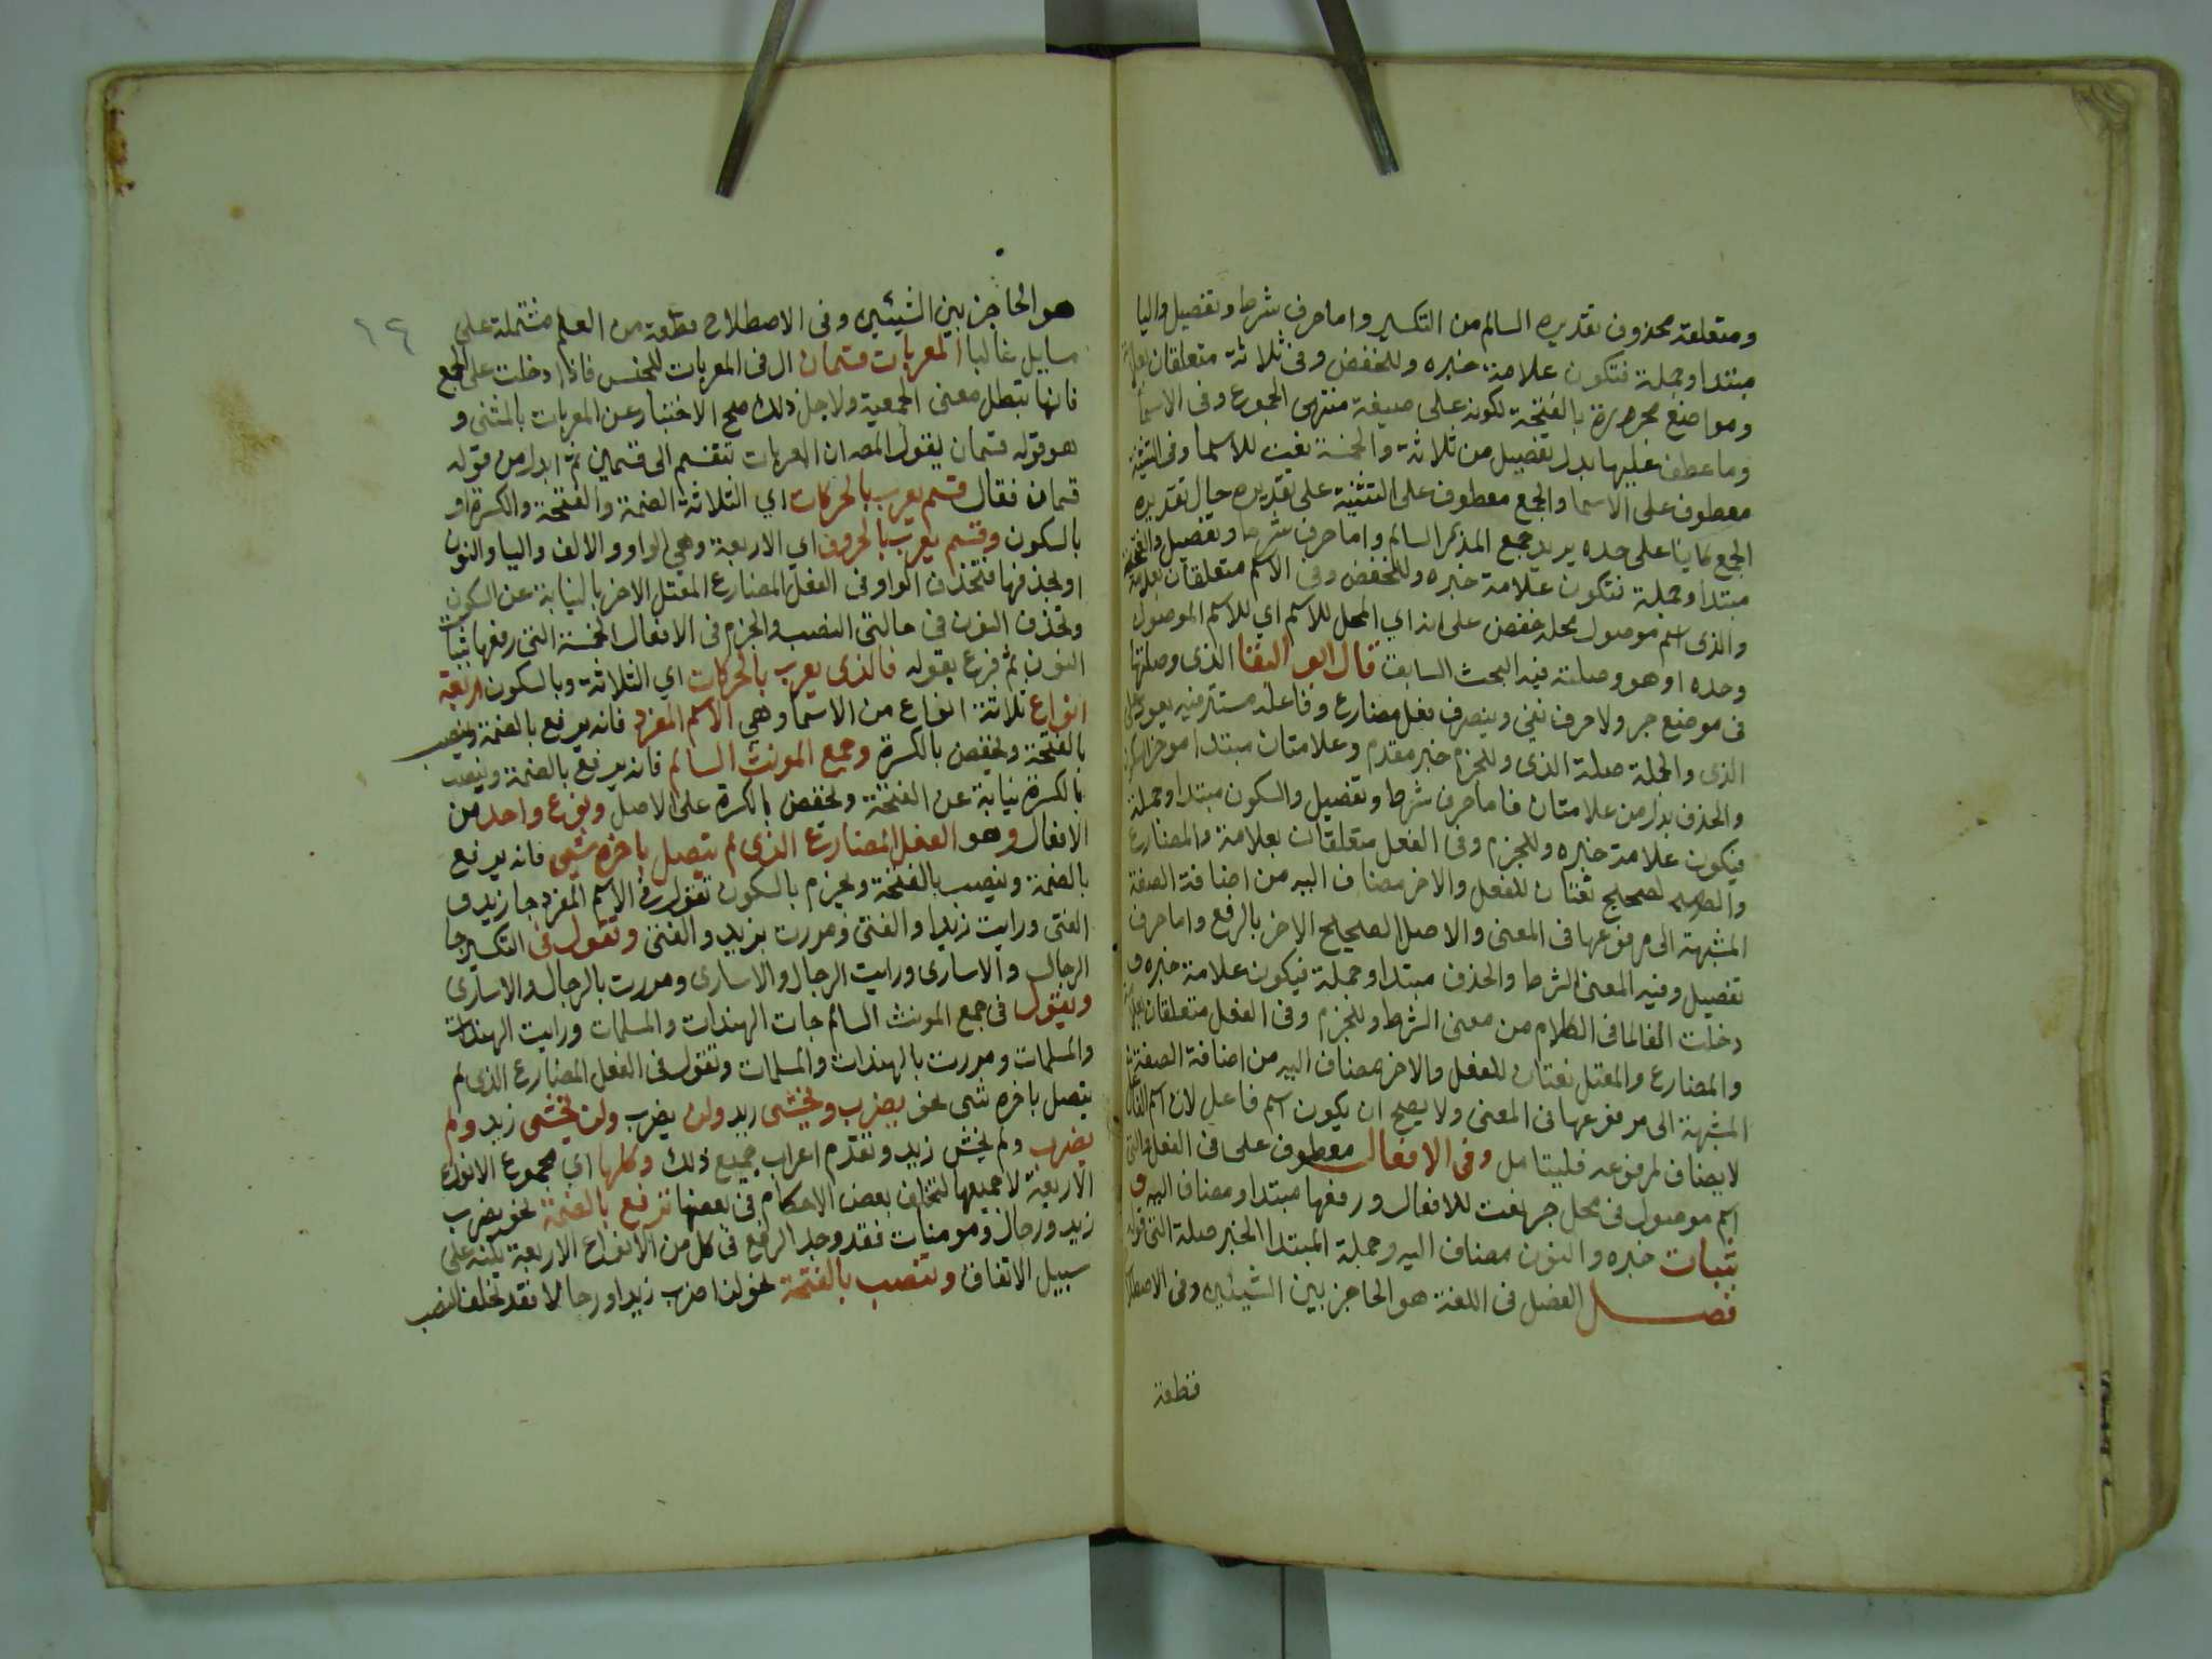 ومتعلقة محذوف تقديره السالم من التكسير واما حرف شرط وتفصيل واليا
مبتدا وجملة فتكون علامة خبره وللخفض وفى ثلاثة متعلقان بعلامة
ومواضع مجرورة بالفتحة لكونه على صيغة منتهى الجموع وفى الاسما
وما عطف عليها بدل تفصيل من ثلاثة والخمسة نعت للاسما وفى التثنية
معطوف على الاسما والجمع معطوف على التثنية على تقديره حال تقديره
الجمع كاينا على حده يريد جمع المذكر السالم واما حرف شرط وتفصيل والفتحة
مبتدا وجملة فتكون علامة خبره وللخفض وفى الاسم متعلقان بعلامة
والذى اسم موصول محله خفض على انه اي المحل للاسم اي للاسم الموصول
وحده او هو وصلته فيه البحث السابق قال ابو البقا الذى وصلتها
فى موضع جر ولا حرف نفي وينصرف فعل مضارع وفاعله مستتر فيه يعود على
الذى والجملة صلة الذى وللجزم خبر مقدم وعلامتان مبتدا موخر السكون
والحذف بدل من علامتان فاما حرف شرط وتفصيل والسكون مبتدا وجملة
فيكون علامة خبره وللجزم وفى الفعل متعلقان بعلامة والمضارع
والصحيح نعتان للفعل والاخر مضاف اليه من اضافة الصفة
المشبهة الى مرفوعها فى المعنى والاصل الصحيح الاخر بالرفع واما حرف
تفصيل وفيه المعنى الشرط والحذف مبتدا وجملة فيكون علامة خبره و
دخلت الفا لما فى الكلام من معنى الشرط وللجزم وفى الفعل متعلقان بعلامة
والمضارع والمعتل نعتان للفعل والاخر مضاف اليه من اضافة الصفة
المشبهة الى مرفوعها فى المعنى ولا يصح ان يكون اسم فاعل لان اسم الفاعل
لا يضاف لمرفوعه فليتامل وفى الافعال معطوف على فى الفعل والتى
اسم موصول فى محل جر نعت للافعال ورفعها مبتدا ومضاف اليه و
بثبات خبره والنون مضاف اليه وجملة المبتدا الخبر صلة التى قوله
فصل الفصل فى اللغة هو الحاجز بين الشيئين وفى الاصطلاح
قطعة
١٤
هو الحاجز بين الشيئين وفى الاصطلاح قطعة من العلم مشتملة على
مسايل غالبا المعربات قسمان ال فى المعربات للجنس فاذا دخلت على الجمع
فانها تبطل معنى الجمعية ولاجل ذلك صح الاختبار عن المعربات بالمثنى و
هو قوله قسمان يقول المص ان المعربات تنقسم الى قسمين ثم ابدل من قوله
قسمان فقال قسم يعرب بالحركات اي الثلاثة الضمة والفتحة والكسرة او
بالسكون وقسم يعرب بالحروف اي الاربعة وهي الواو والالف واليا والنون
او بحذفها فتحذف الواو فى الفعل المضارع المعتل الاخر بالنيابة عن السكون
وتحذف النون فى حالتى النصب والجزم فى الافعال الخمسة التى رفعها بثبات
النون ثم فرع بقوله فالذى يعرب بالحركات اي الثلاثة وبالسكون اربعة
انواع ثلاثة انواع من الاسما وهي الاسم المفرد فانه يرفع بالضمة وينصب
بالفتحة ويخفض بالكسرة وجمع المونث السالم فانه يرفع بالضمة وينصب
بالكسرة نيابة عن الفتحة ويخفض بالكسرة على الاصل ونوع واحد من
الافعال وهو الفعل المضارع الذى لم يتصل باخره شيى فانه يرفع
بالضمة وينصب بالفتحة ويجزم بالسكون تقول فى الاسم المفرد جا زيد و
الفتى ورايت زيدا والفتى ومررت بزيد والفتى وتقول فى التكسير جا
الرجال والاسارى ورايت الرجال والاسارى ومررت بالرجال والاسارى
وتقول فى جمع المونث السالم جات الهندات والمسلمات ورايت الهندات
والمسلمات ومررت بالهندات والمسلمات وتقول فى الفعل المضارع الذى لم
يتصل باخره شى نحو يضرب ويخشى زيد ولن يضرب ولن يخشى زيد ولم
يضرب ولم يخش زيد وتقدم اعراب جميع ذلك وكلها اي مجموع الانواع
الاربعة لا جميعها لتخلف بعض الاحكام فى بعضها ترفع بالضمة نحو يضرب
زيد ورجال ومومنات فقد وجد الرفع فى كل من الانواع الاربعة على
سبيل الاتفاق وتنصب بالفتحة نحو لن اضرب زيدا ورجالا فقد تخلف النصب